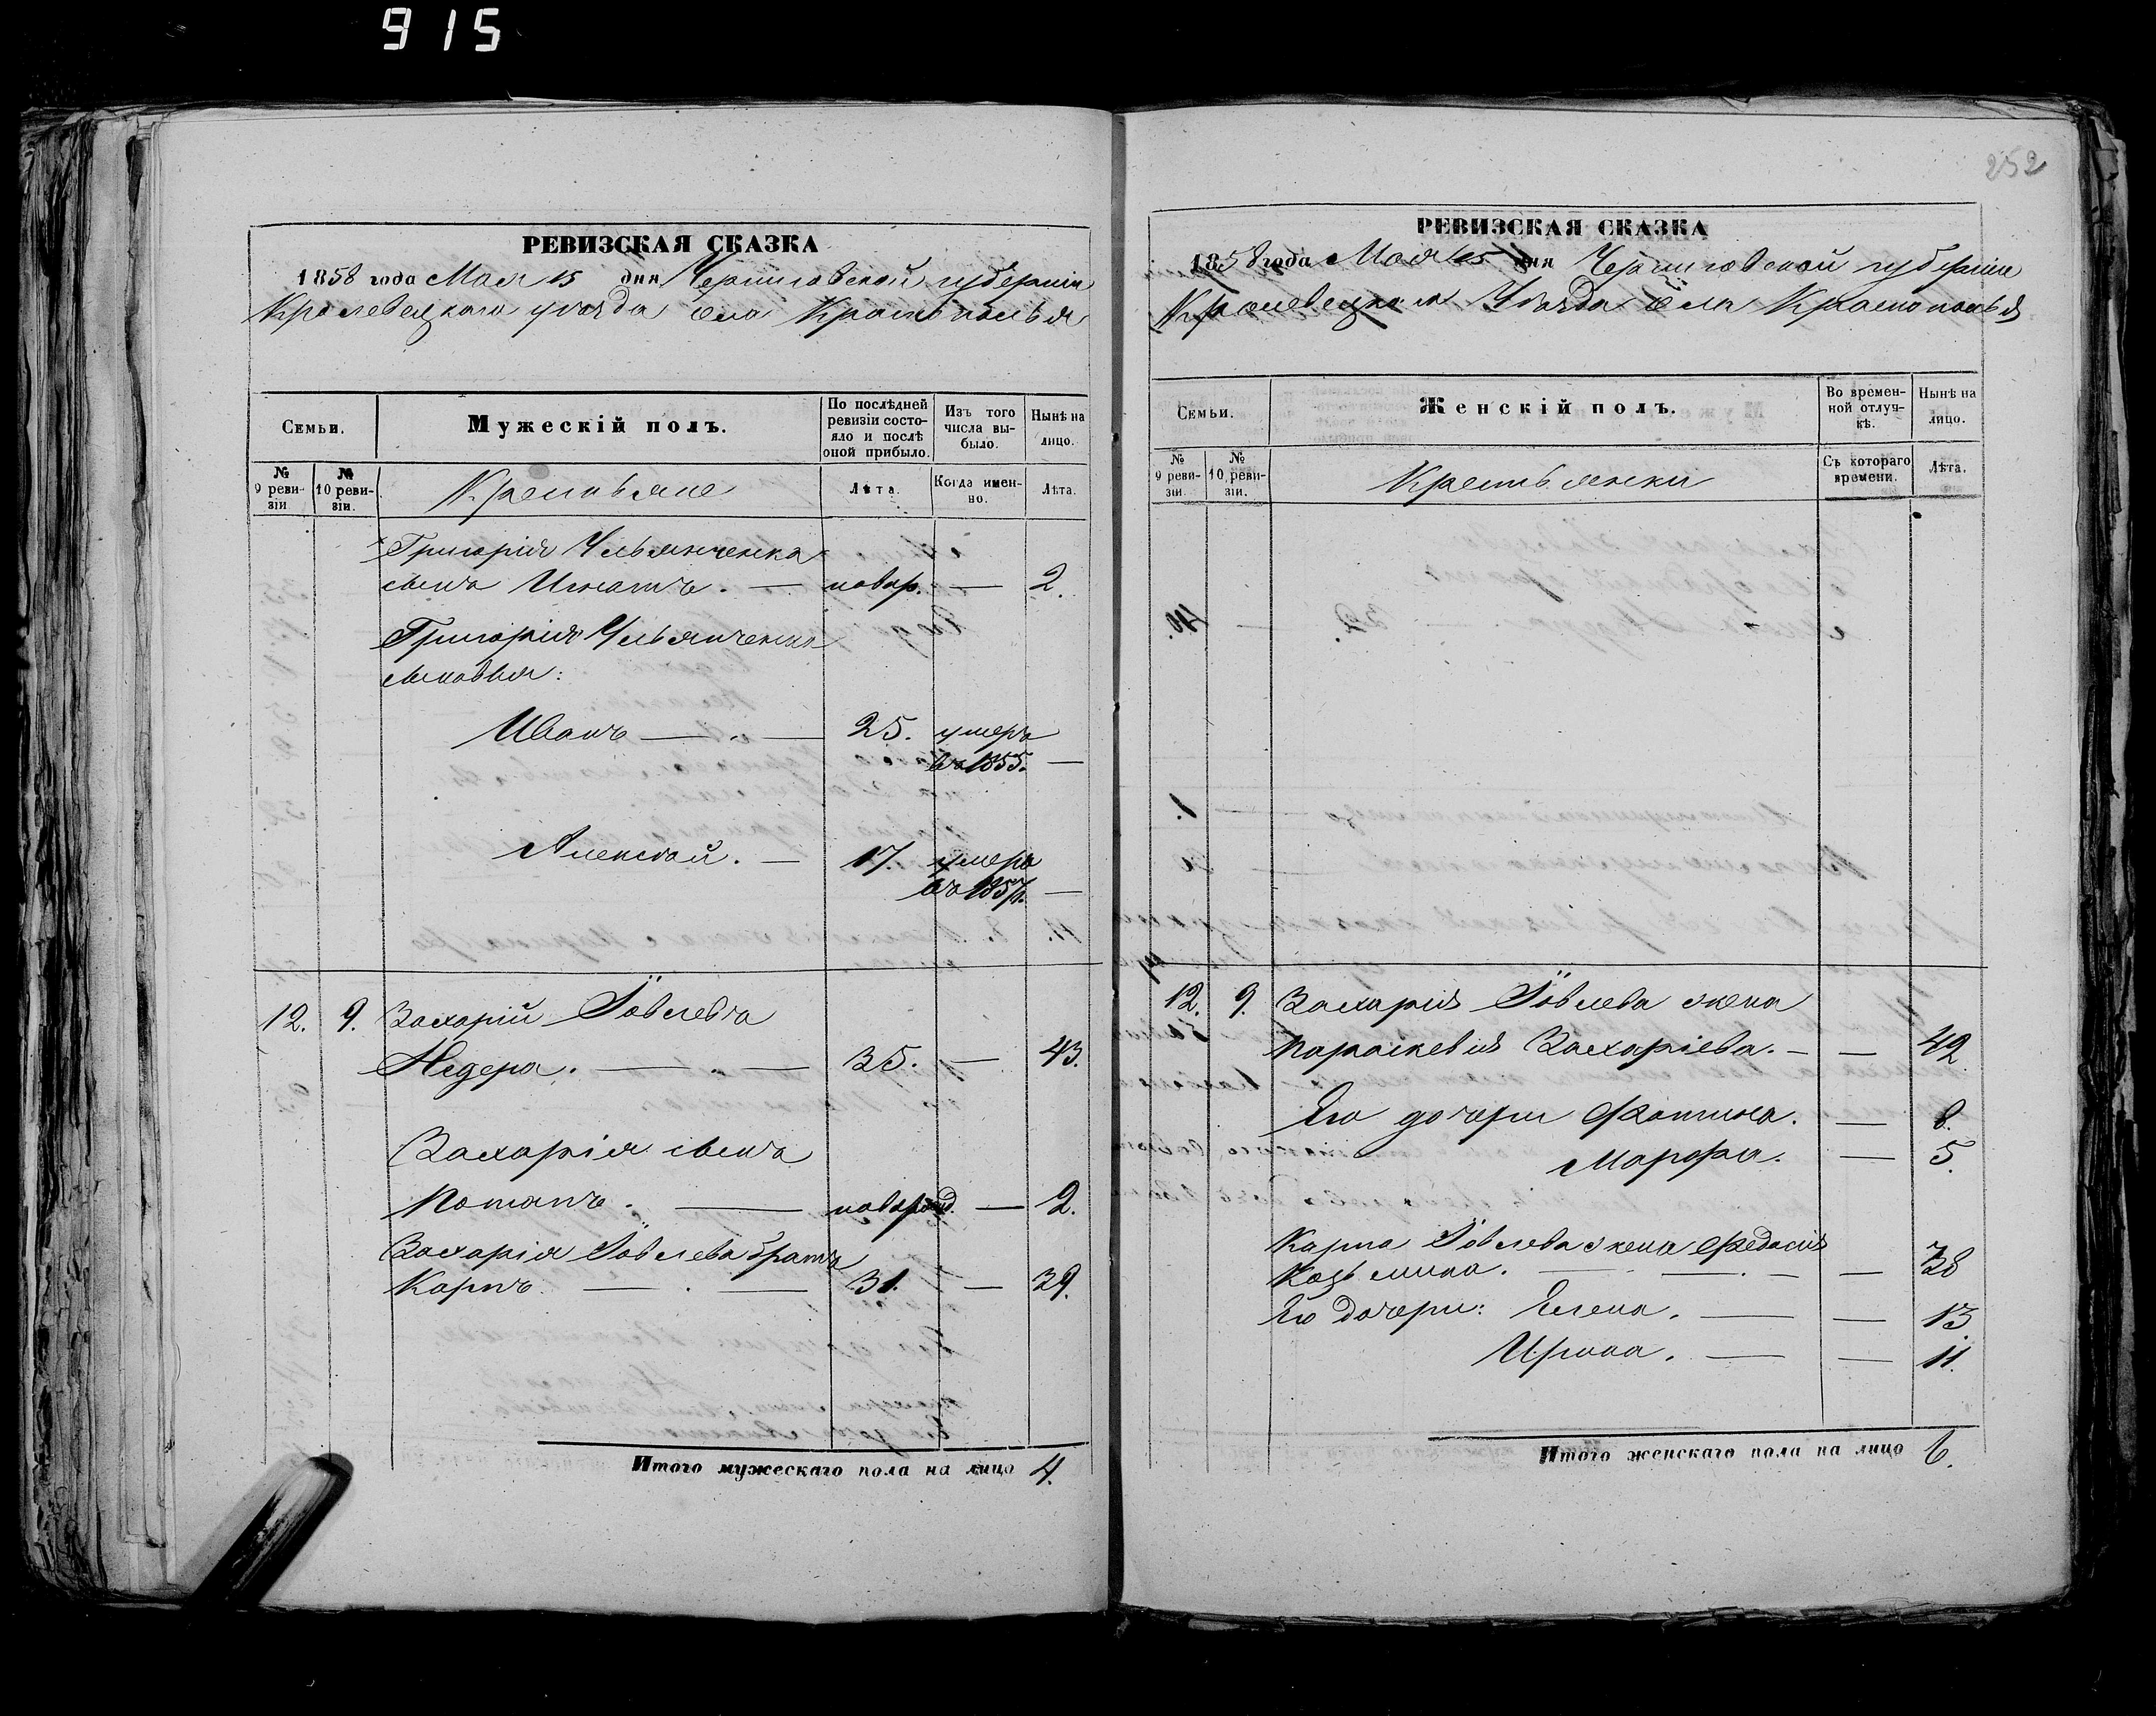 915
252
РЕВИЗСКАЯ СКАЗКА
1858 года Мая 15 дня Черниговской губерніи
Кролевецкаго уѣзда села Краснополья
Семьи.
Мужескій полъ.
По послѣдней ревизіи состояло и послѣ оной прибыло.
Изъ того числа выбыло.
Нынѣ на лицо.
№ 9 ревизіи.
№ 10 ревизіи.
Крестьяне
Лѣта.
Когда именно.
Лѣта.
Григорія Ульянченка
сынъ Игнатъ. — новор. — 2.
Григорія Ульянченка
сыновья:
Иванъ — 25. умеръ
въ 1855. —
Алексѣй. — 17. умеръ
въ 1857. —
12. 9. Захарій Іовлевъ
Недера. — 35. — 43.
Захарія сынъ
Потапъ. — новорожд. — 2.
Захарія Іовлева братъ
Карпъ. — 31. — 39.
Итого мужескаго пола на лицо 4.
РЕВИЗСКАЯ СКАЗКА
1858 года Мая 15 дня Черниговской губерніи
Кролевецкаго Уѣзда села Краснополья
Семьи.
Женскій полъ.
Во временной отлучкѣ.
Нынѣ на лицо.
№ 9 ревизіи.
№ 10 ревизіи.
Крестьянки
Съ котораго времени.
Лѣта.
12. 9. Захарія Іовлева жена
Параскевія Захаріева. — — 42.
Его дочери Фотина. — 8.
Марфа. — 5.
Карпа Іовлева жена Федосія
Козьмина. — — 38
Его дочери: Елена. — — 13.
Ирина. — — 11.
Итого женскаго пола на лицо 6.